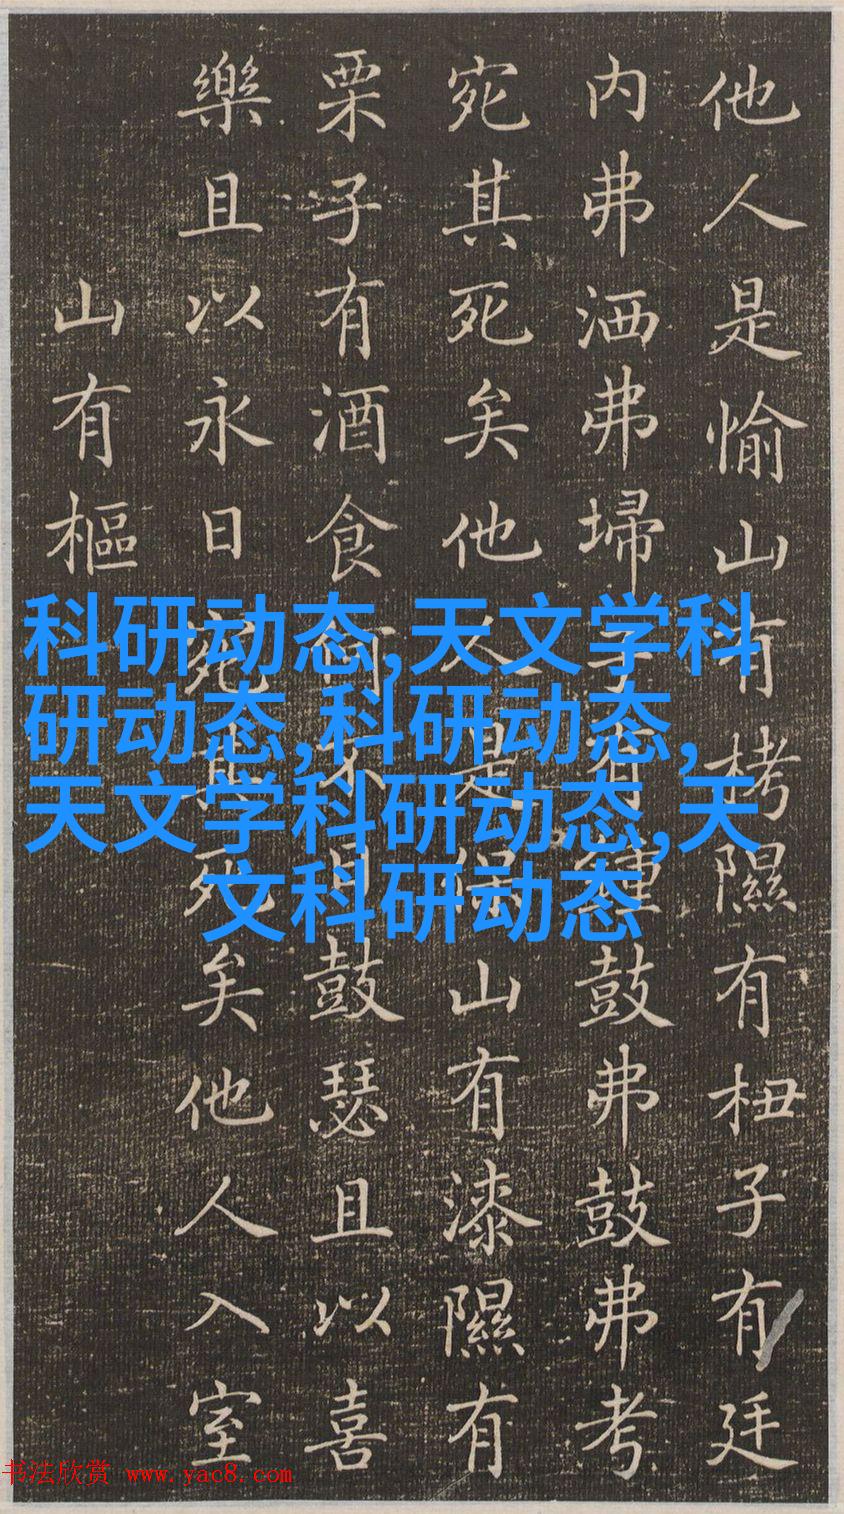 他人是愉山有栲隰有杻子有廷
内弗洒弗埽子有鍾鼓弗鼓弗考
宛其死矣他人是保山有漆隰有
栗子有酒食何不日鼓瑟且以喜
樂且以永日宛其死矣他人入室
山有樞
科研动态,天文学科
研动态,科研动态,
天文学科研动态,天
文科研动态
书法欣赏 www.yac8.com